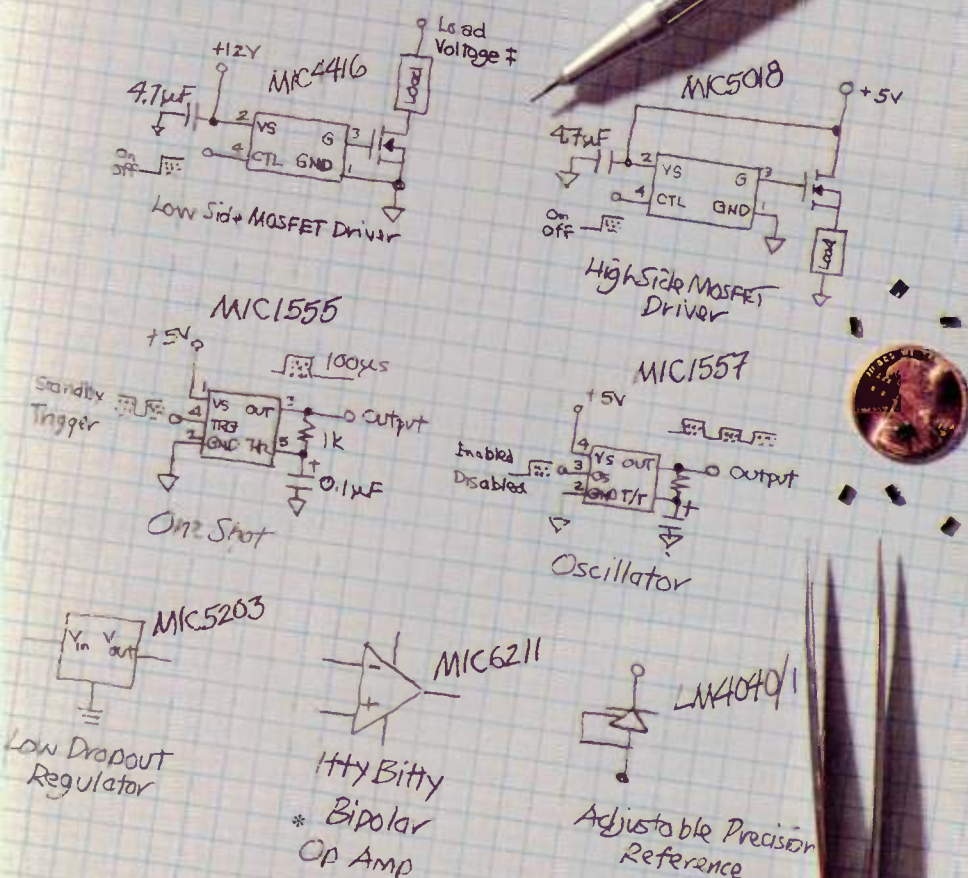 MIC4416
+12V
Load
Voltage ‡
Load
4.7µF
2
VS
G
3
4
CTL
GND
1
On
Off
Low Side MOSFET Driver
MIC5018
+5V
4.7µF
2
VS
G
3
4
CTL
GND
1
On
Off
Load
High Side MOSFET
Driver
MIC1555
+5V
100µs
Standby
Trigger
1
VS
OUT
3
Output
4
TRG
1K
2
GND
THR
5
+
0.1µF
One Shot
MIC1557
+5V
Enabled
Disabled
4
VS
OUT
Output
3
CS
2
GND
T/T
+
Oscillator
MIC5203
Vin
Vout
Low Dropout
Regulator
MIC6211
-
+
Itty Bitty
* Bipolar
Op Amp
LM4040/1
Adjustable Precision
Reference